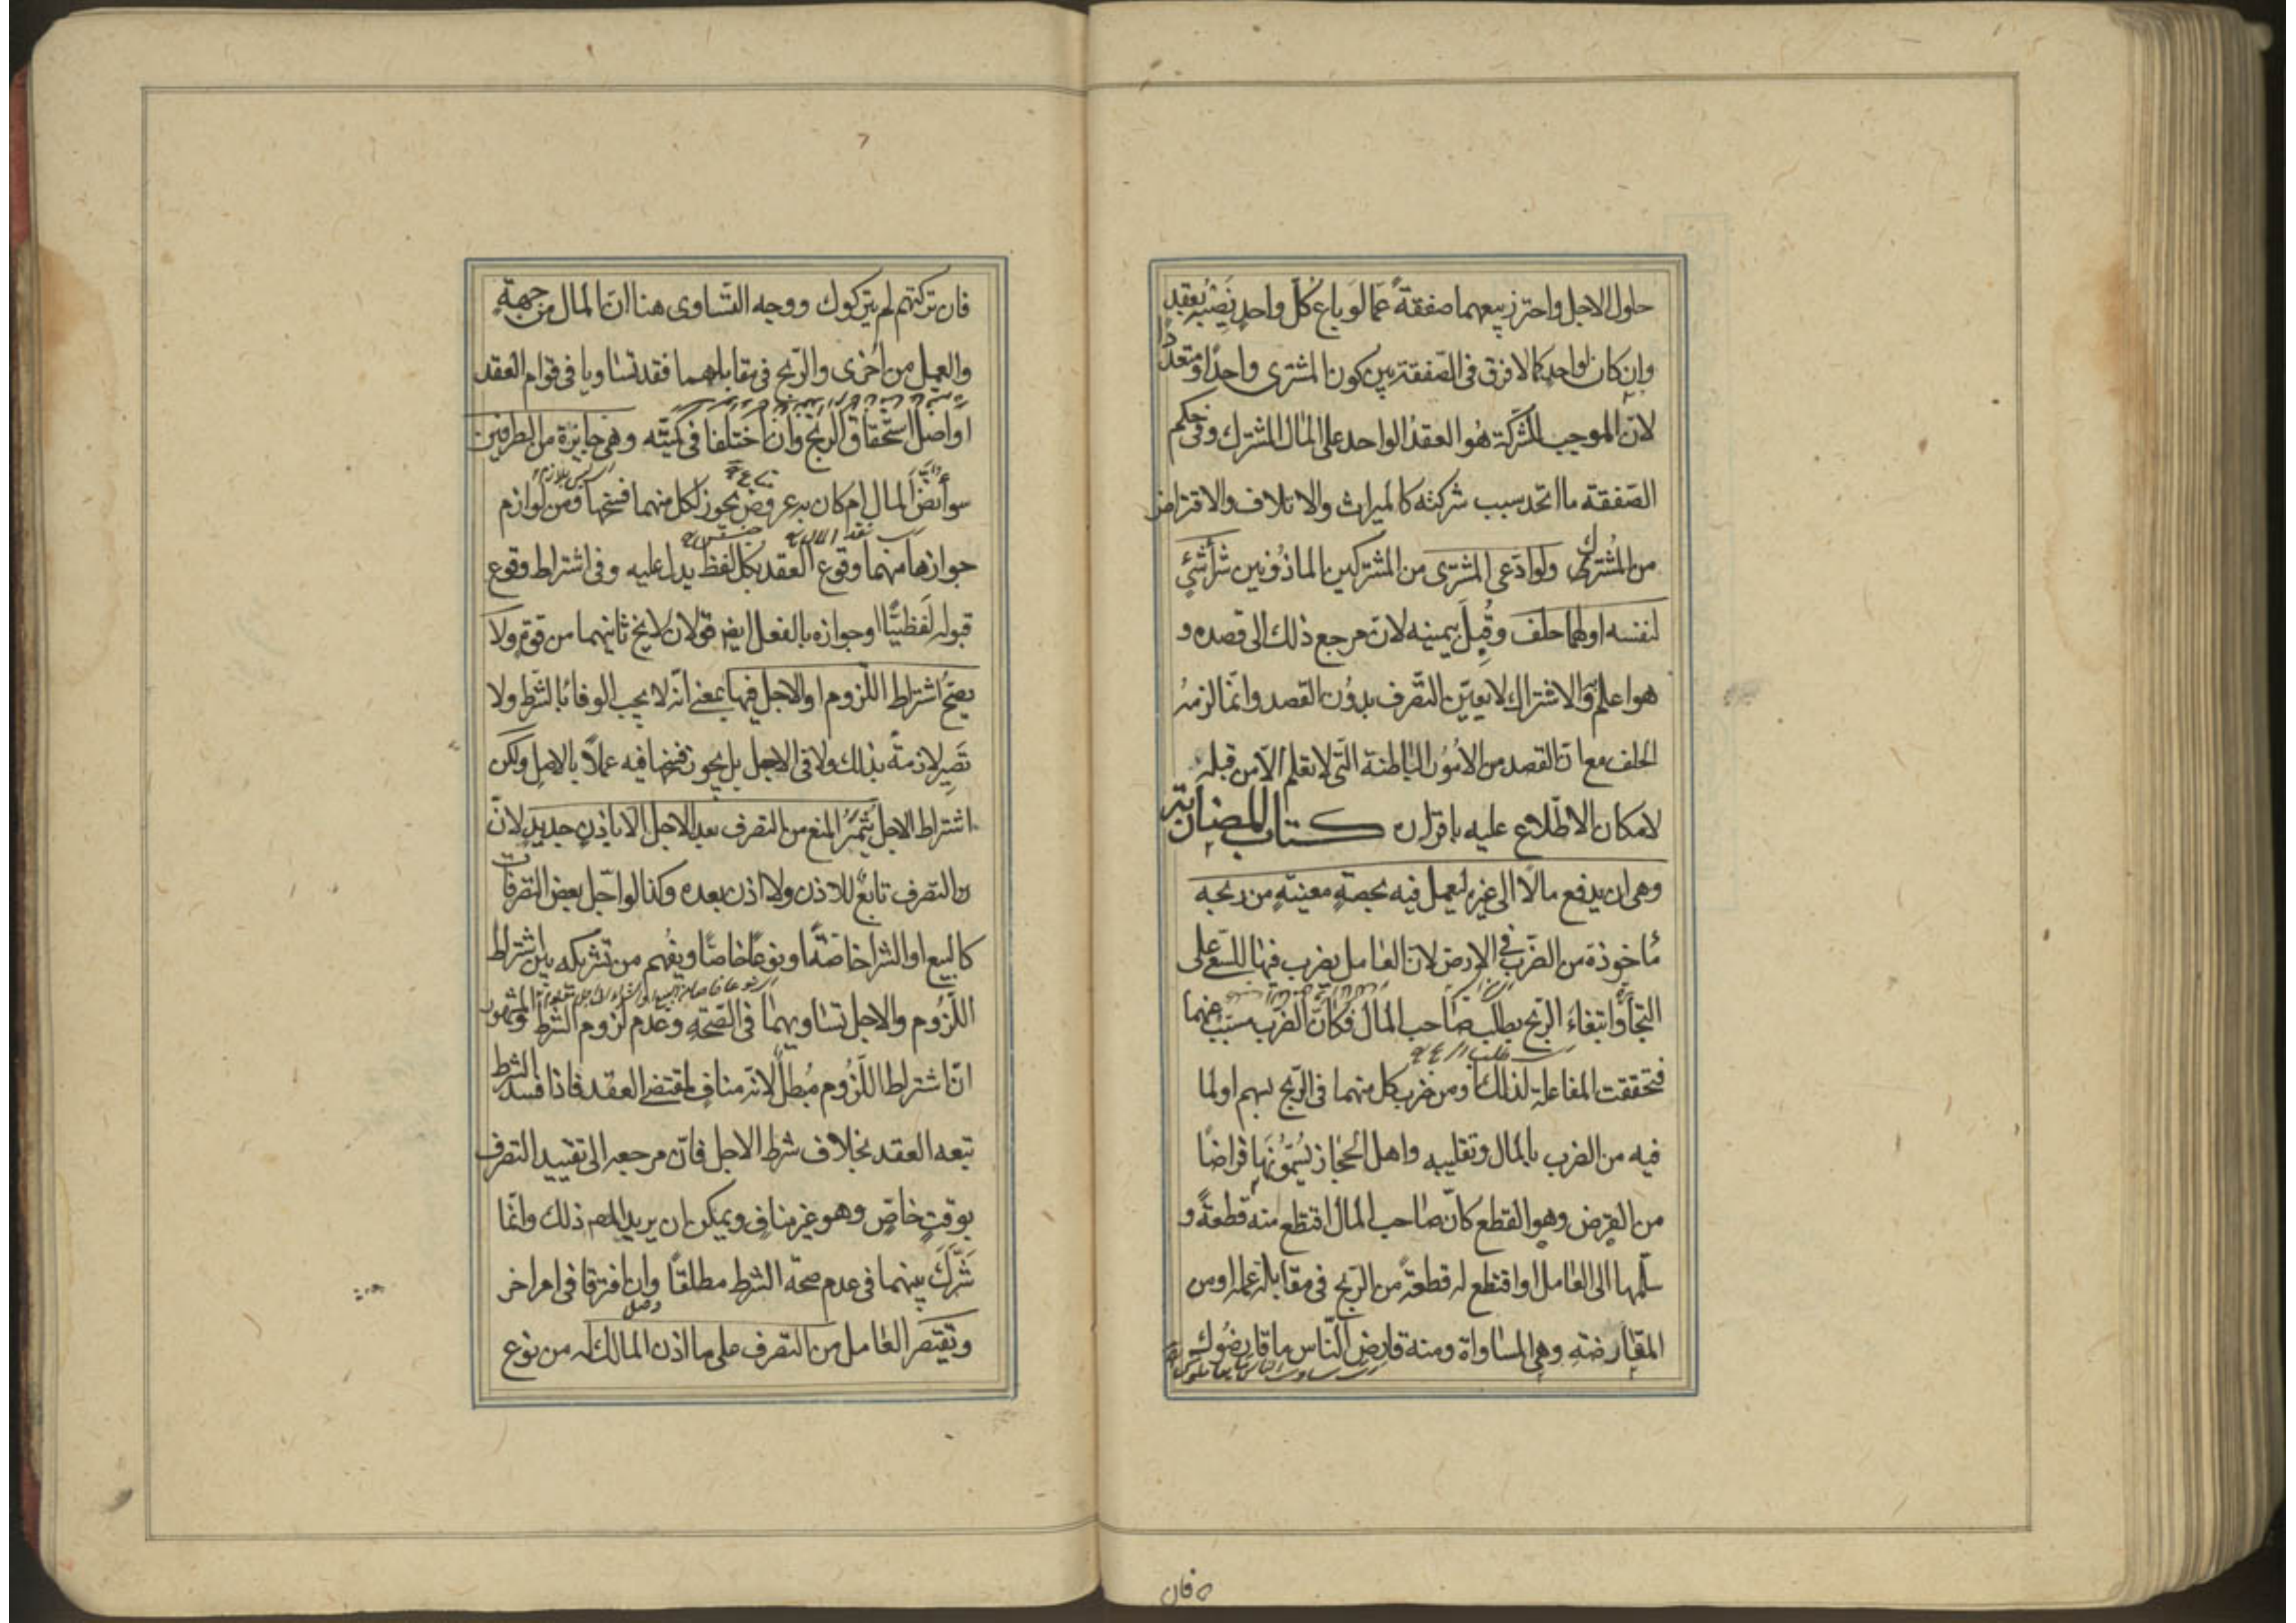 حلول الاجل واحترز ببيعهما صفقةً عمّا لو باع كلّ واحدٍ نصيبه بعقد
وان كان لواحد كما لا فرق فى الصّفقة بين كون المشترى واحدًا او متعددًا
لانّ الموجب للشركة هو العقد الواحد على المال المشترك وفى حكم
الصّفقة ما اتّحد سبب شركته كالميراث والاتلاف والاقتراض
من المُشترك ولو ادّعى المشترى من المشتركين الماذونين شرآء شئٍ
لنفسه او لهما حلف وقُبِلَ بيمينه لانّ مرجع ذلك الى قصده و
هو اعلم والاشتراك لا يعيّن التّصرف بدون القصد وانّما لزمه
الحلف مع انّ القصد من الامور الباطنة الّتى لا تعلم الّا من قبله
لامكان الاطّلاع عليه باقراره كتاب المضاربة
وهى ان يدفع مالًا الى غيره ليعمل فيه بحصةٍ معينةٍ من ربحه
مأخوذة من الضّرب فى الارض لانّ العامل يضرب فيها للسّعى على
التجارة وابتغاء الرّبح بطلب صاحب المال فكانّ الضّرب مسبّب عنهما
طلب الربح
فتحققت المفاعلة لذلك او من ضرب كل منهما فى الرّبح بسهم او لما
فيه من الضرب بالمال وتقليبه واهل الحجاز يُسمّونها قراضًا
من القرض وهو القطع كانّ صاحب المال اقتطع منه قطعةً و
سلّمها الى العامل او اقتطع له قطعةً من الرّبح فى مقابلة عمله او من
المقارضة وهى المساواة ومنه قارض النّاس ما قارضُوك
فان
فان تركتهم لم يتركوك ووجه التّساوى هنا انّ المال من جهةٍ
والعمل من اخرى والرّبح فى مقابلهما فقد تساويا فى قوام العقد
او اصل استحقاق الرّبح وان اختلفا فى كميّته وهى جايزة من الطرفين
سوآء نضّ المال ام كان به عروض يجوز لكل منهما فسخها ومن لوازم
جوازها منهما وقوع العقد بكل لفظ يدل عليه وفى اشتراط وقوع
قبوله لفظيًّا او جوازه بالفعل ايضا قولان لا يخ ثانيهما من قوةٍ ولا
يصحّ اشتراط اللّزوم او الاجل فيها بمعنى انّه لا يجب الوفاء بالشّرط ولا
تصير لازمةً بذلك ولا فى الاجل بل يجوز فسخها فيه عملًا بالاصل ولكن
اشتراط الاجل يُثمر المنع من التصرف بعد الاجل الّا باذنٍ جديدٍ لانّ
التصرف تابعٌ للاذن ولا اذن بعده وكذا لو اجّل بعض التصرفات
كالبيع او الشرا خاصّةً او نوعًا خاصًّا ويفهم من تشريكه بين اشتراط
اللّزُوم والاجل تساويهما فى الصّحّة وعدم لزوم الشرط والمشهور
انّ اشتراط اللّزُوم مُبطلٌ لانّه منافٍ لمقتضى العقد فاذا فسد الشرط
تبعه العقد بخلاف شرط الاجل فانّ مرجعه الى تقييد التصرف
بوقتٍ خاصّ وهو غير منافٍ ويمكن ان يريد المصر ذلك وانّما
شَرّكَ بينهما فى عدم صحّة الشرط مطلقًا وان افترقا فى امر اخر
ويقتصر العامل من التصرف على ما اذن المالك له من نوع